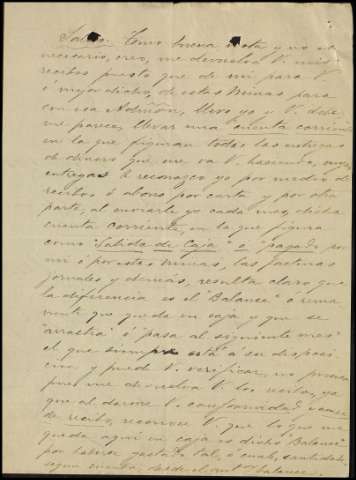 Saldo. Tomo buena nota y no es
necesario, creo, me devuelva V. mis
recibos puesto que de mi para V.
ó mejor dicho, de estas Minas, para
con esa Admón, llevo yo y V. debe,
me parece, llevar una cuenta corriente
en la que figuran todas las entregas
de dinero que me va V. haciendo, cuyas
entregas le reconozco yo por medio de
recibos ó abono por carta y por otra
parte, al enviarle yo cada mes dicha
cuenta corriente, en la que figura
como "Salida de Caja" o "pagado por
mi ó por estas minas, las facturas
jornales y demás, resulta claro que
la diferencia es el "Balance" ó rema
nente que queda en caja y que se
"arrastra" ó pasa al siguiente mes
el que siempre está a su disposi
cion y puede V. verificar, no precisa
pues me devuelva V. los recibos, ya
que al darme V. conformidad, o
de recibo, reconoce V. que lo que me
queda aquí en caja es dicho "Balance"
por haberse gastado tal, ó cual, cantidad,
segun cuenta, desde el balance.